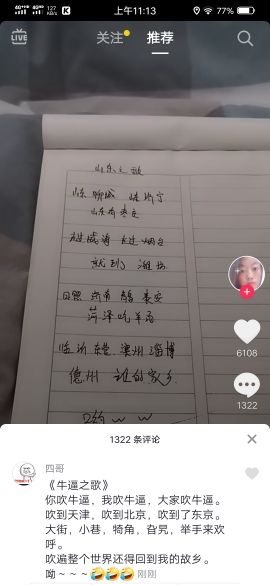 上午11:13
77%
LIVE
关注
推荐
山东之歌
山东 聊城 性 济宁
山东有枣庄
越威海 长过 烟台
就到 潍坊
日照 济南 青岛 泰安
菏泽吃羊舌
临沂 东营 滨州 淄博
德州 谁的家乡
6108
1322
1322 条评论
四哥
《牛逼之歌》
你吹牛逼,我吹牛逼,大家吹牛逼。
吹到天津,吹到北京,吹到了东京。
大街,小巷,犄角,旮旯,举手来欢
呼。
吹遍整个世界还得回到我的故乡。
呦~~~🤣🤣🤣 刚刚